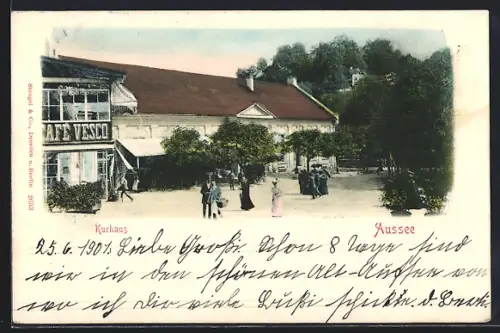 CAFÉ VESCO
Stengel & Co., Dresden u. Berlin 2053
Kurhaus
Aussee
25.6.1901 Liebe Große Schon 8 Tage sind
wir in den schönen Alt-Aussee von
wo ich Dir viele Bußi schickte. d.